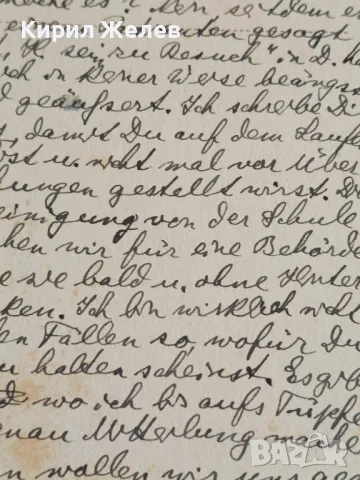 Кирил Желев
seitdem e
ten gesagt
"K. sei zu Besuch" in D. ha
ch in keiner Weise beängs
d geäußert. Ich schreibe Di
s, damit Du auf dem Laufe
ist u. nicht mal vor Über
hungen gestellt wirst. D
einigung von der Schule
hen wir für eine Behörde
e sie bald u. ohne Hinter
ken. Ich bin wirklich nicht
len Fällen so, wofür Du
zu halten scheinst. Es gib
wo ich bis aufs Tüpfe
enau Mitteilung mache
n wollen wir uns ged
bazar